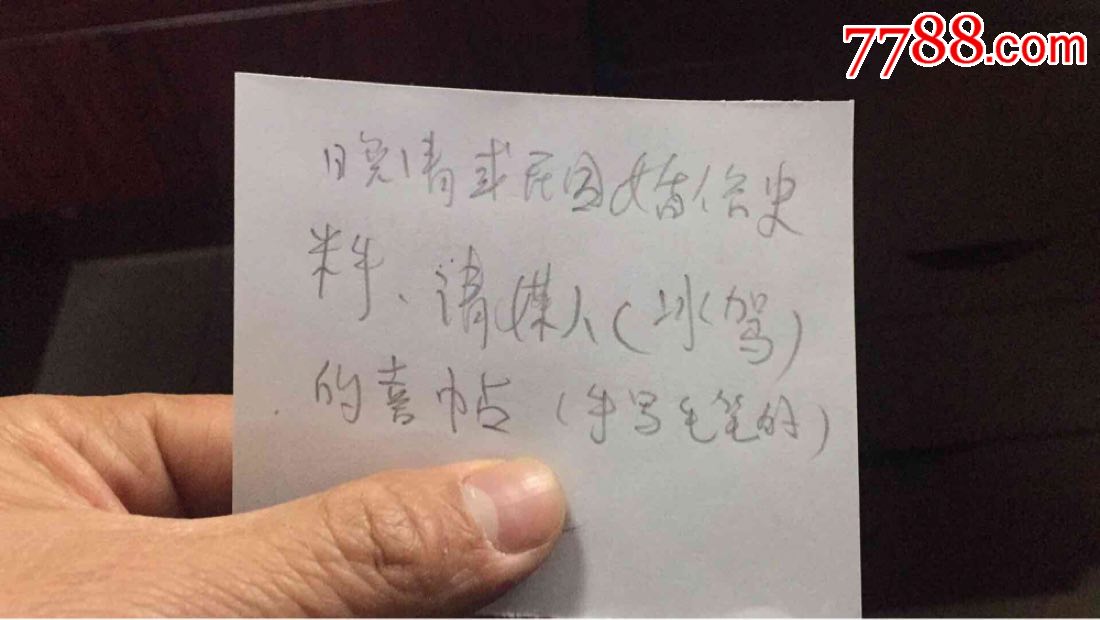 7788.com
晚清或民国婚俗史
料、请媒人(冰驾)
的喜帖(手写毛笔的)